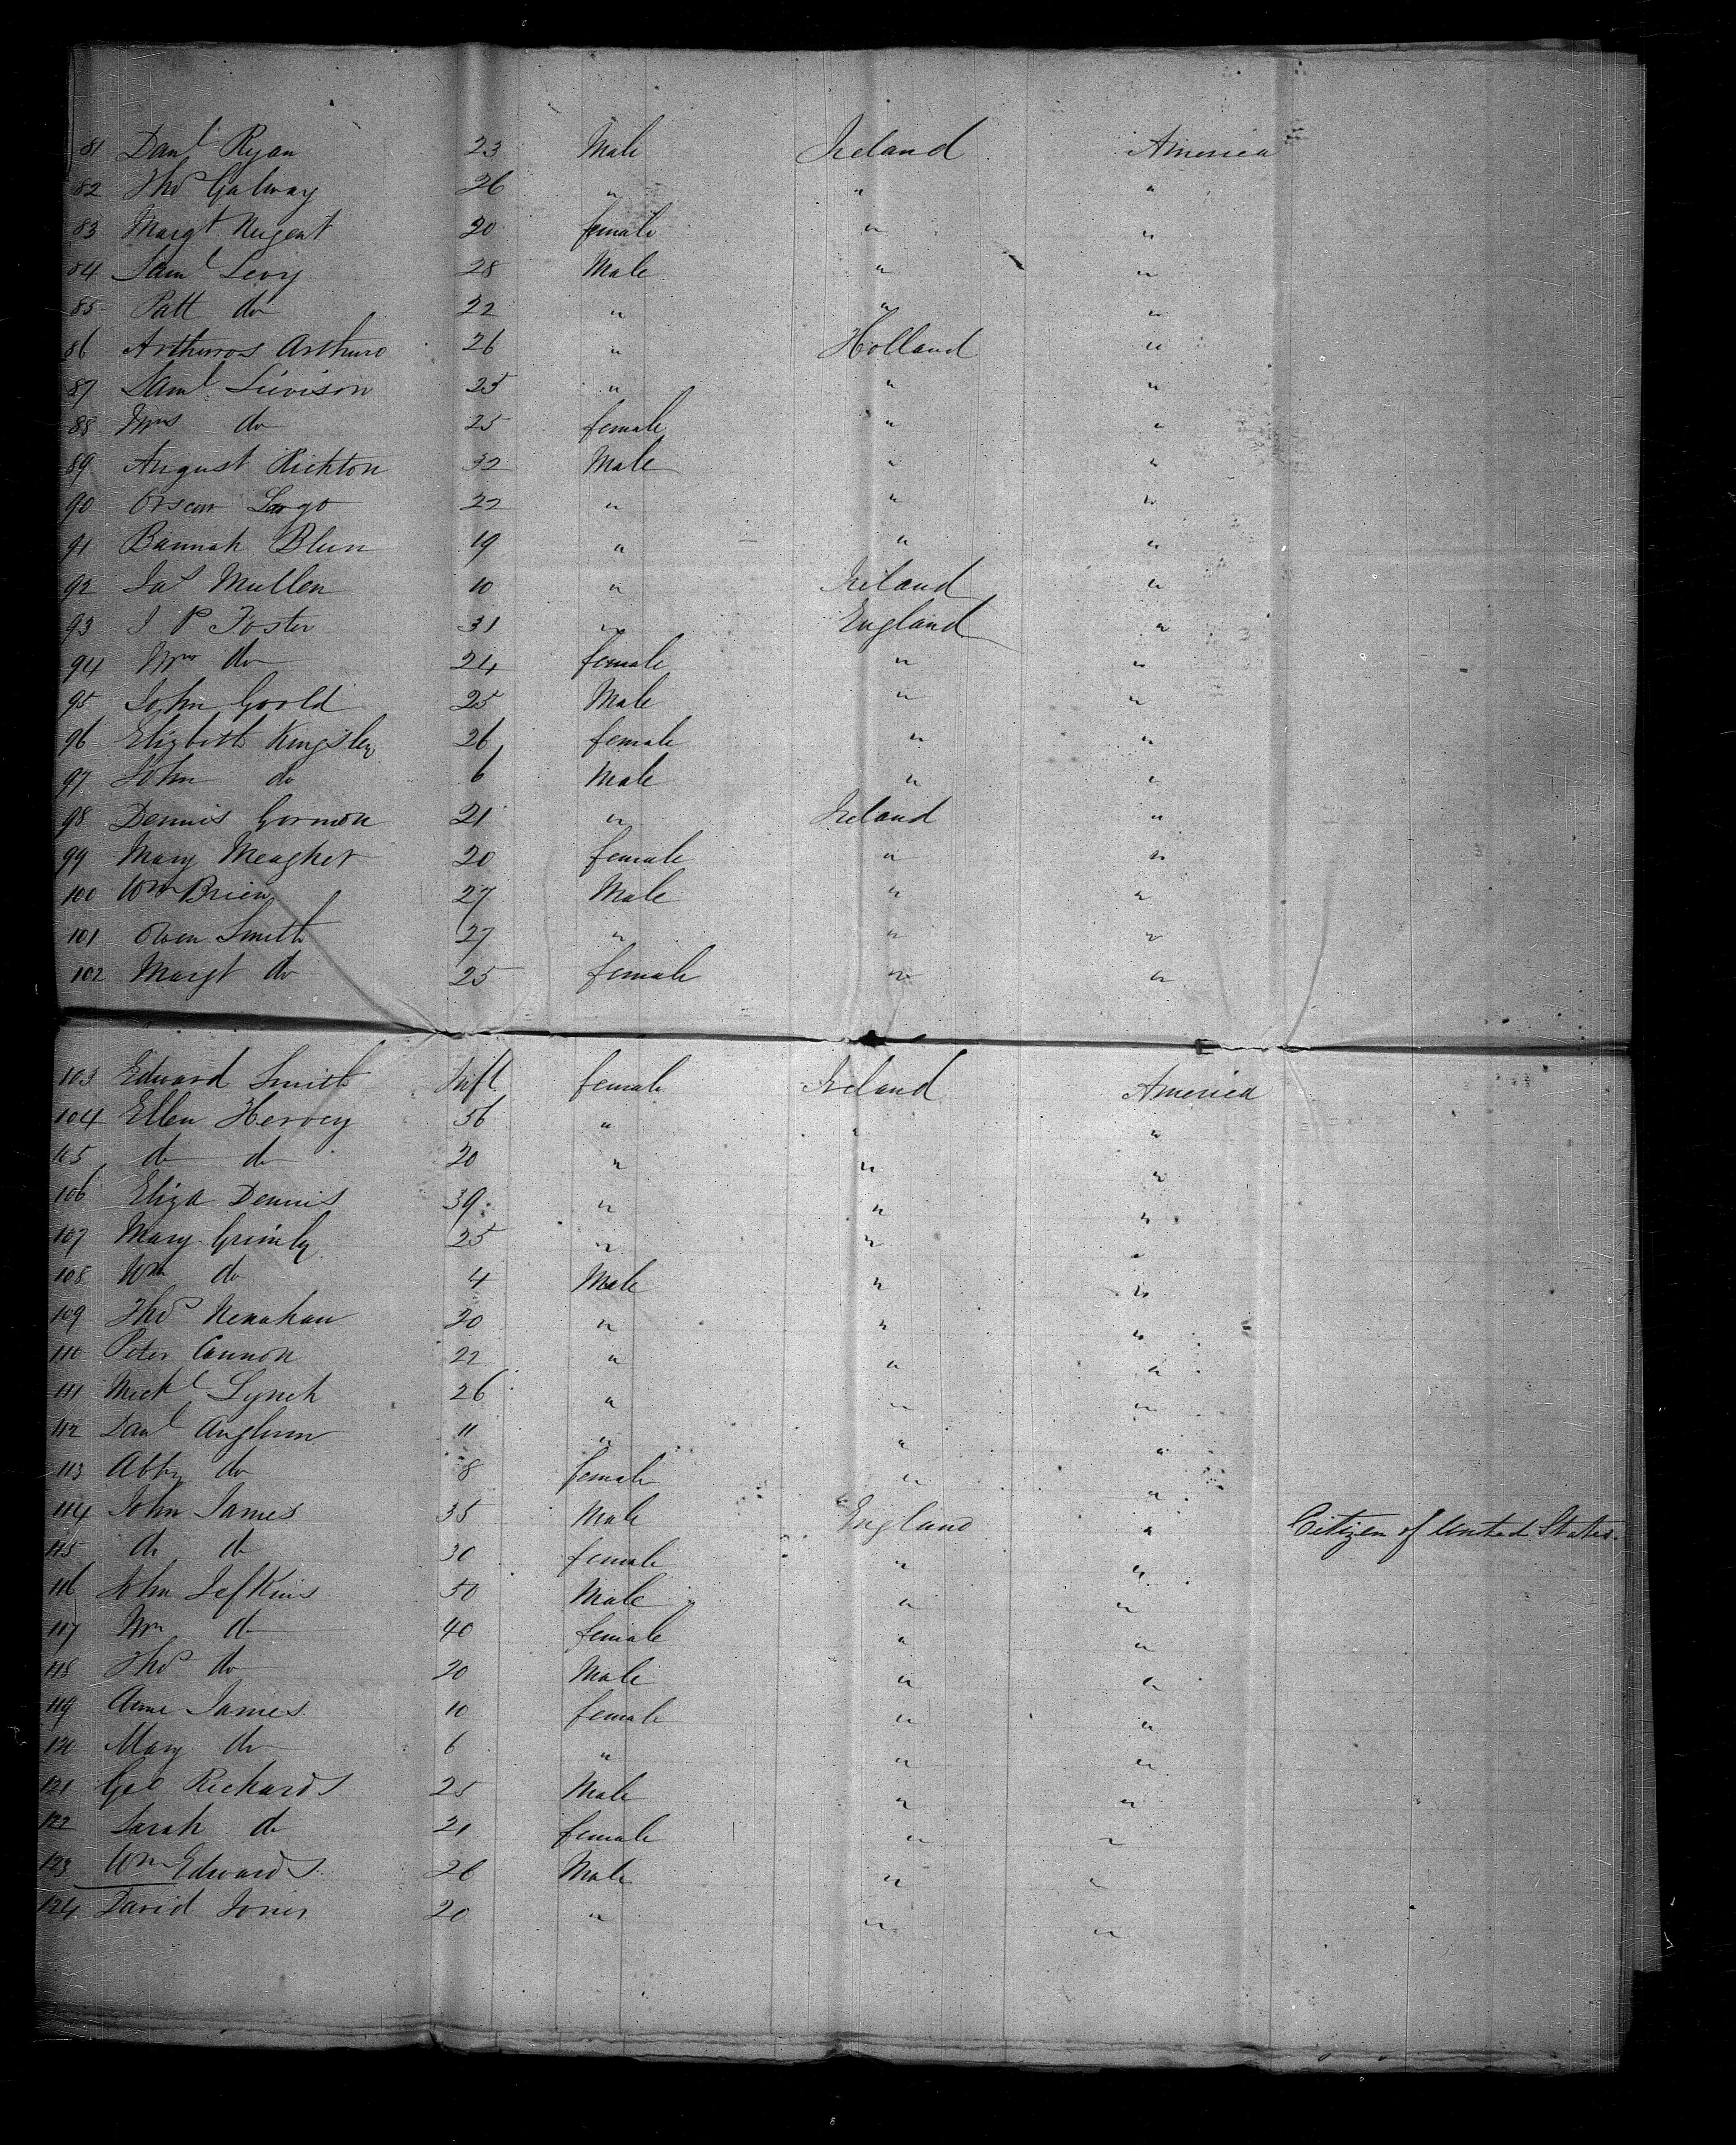 81 Danl Ryan 23 Male Ireland America
82 Thos Galway 26 " " "
83 Margt Nugent 20 female " "
84 Saml Levy 28 Male " "
85 Patt do 22 " " "
86 Arthurros Arthuro 26 " Holland "
87 Saml Lievison 25 " " "
88 Mrs do 25 female " "
89 August Rickton 32 Male " "
90 Oscar Largo 22 " " "
91 Bannah Blum 19 " " "
92 Jas Mullen 10 " Ireland "
93 J P Foster 31 " England "
94 Mrs do 24 female " "
95 John Goold 25 Male " "
96 Elizbeth Kingsley 26 female " "
97 John do 6 Male " "
98 Dennis Gormon 21 " Ireland "
99 Mary Meagher 20 female " "
100 Wm Brien 27 Male " "
101 Owen Smith 27 " " "
102 Margt do 25 female " "
103 Edward Smith Inft female Ireland America
104 Ellen Hervey 56 " " "
105 do do 20 " " "
106 Eliza Dennis 39 " " "
107 Mary Grimly 25 " " "
108 Wm do 4 Male " "
109 Thos Nenahan 20 " " "
110 Peter Cannon 22 " " "
111 Mickl Lynch 26 " " "
112 Danl 11 " " "
113 Abby do 8 female " "
114 John James 35 Male England " Citizen of United States.
115 do do 30 female " "
116 John Jefkins 50 Male " "
117 do 40 female " "
118 Thos do 20 Male " "
119 Anne James 10 female " "
120 Mary do 6 " " "
121 Geo Richards 25 Male " "
122 Sarah do 21 female " "
123 Wm Edwards 26 Male " "
124 David Jones 20 " " "